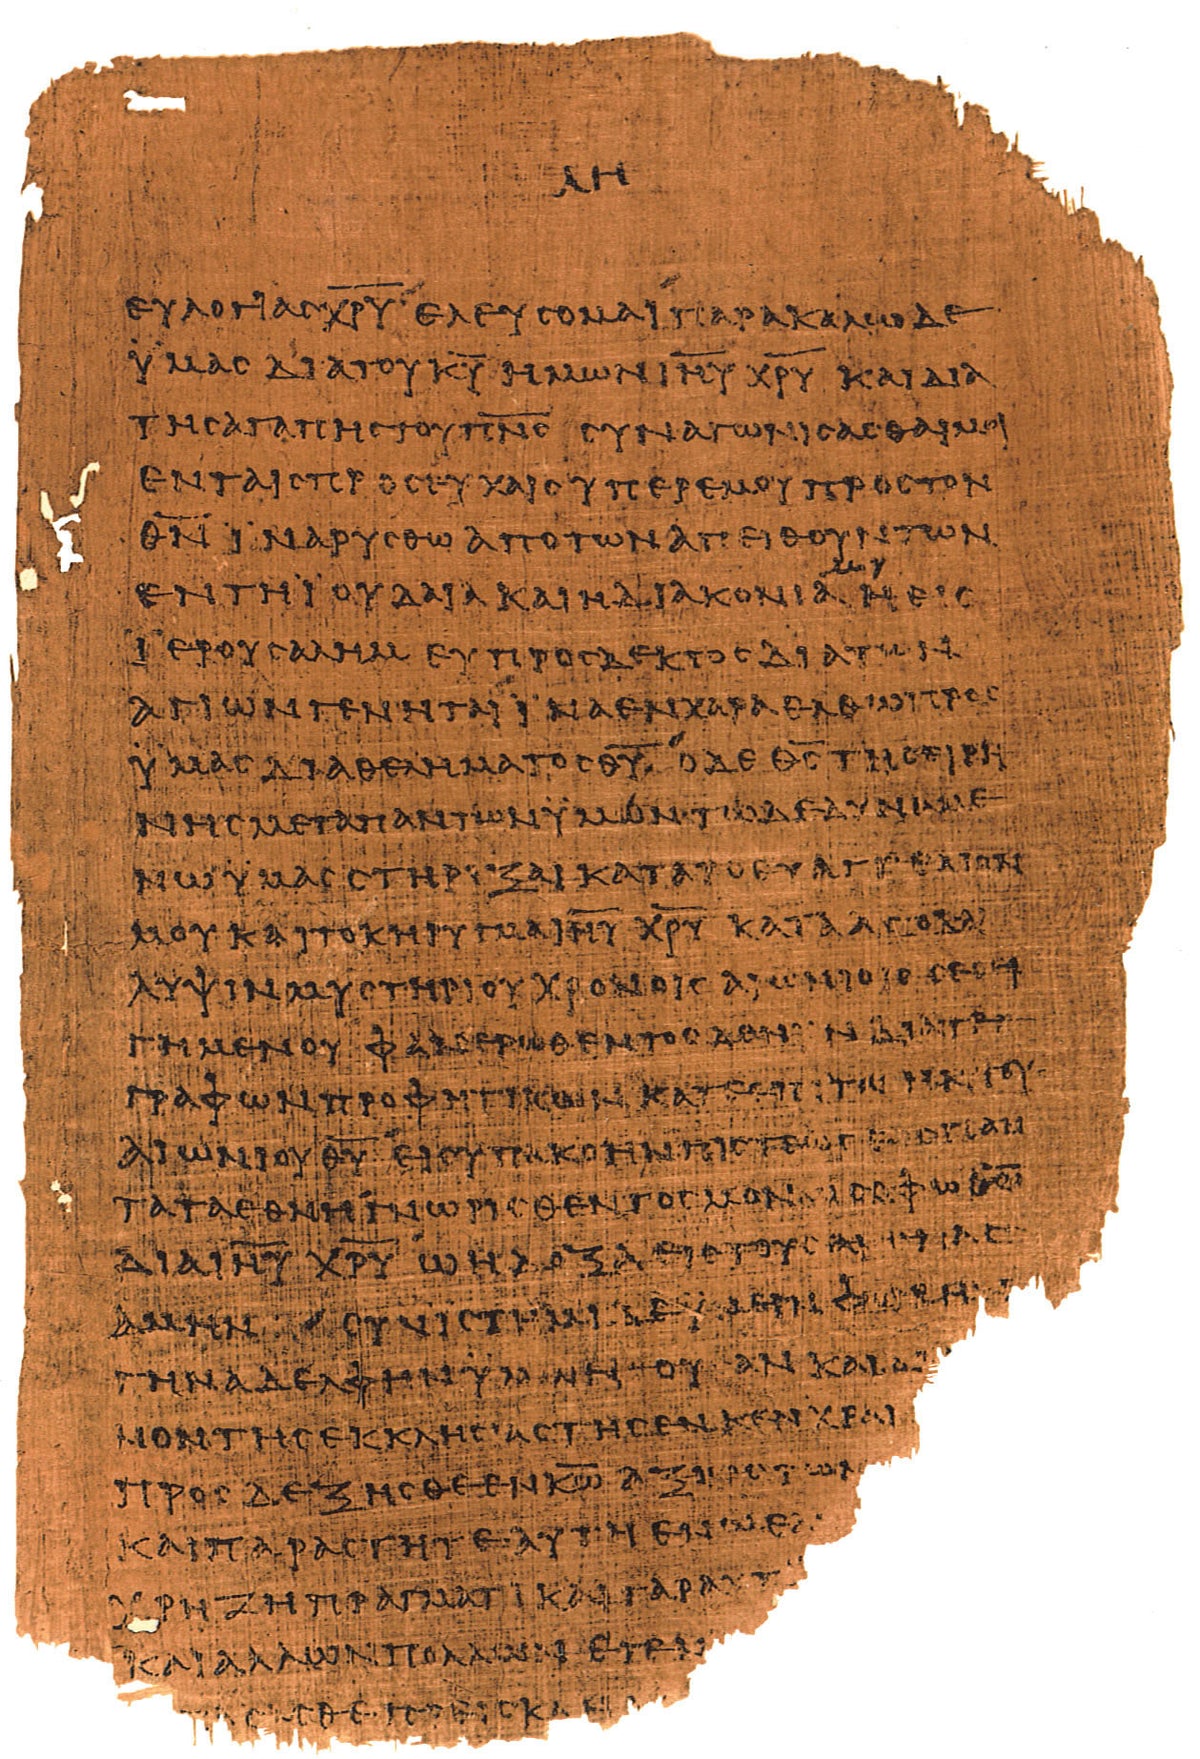 ΛΗ
ΕΥΛΟΓΙΑϹ ΧΡ̅Υ̅ ΕΛΕΥϹΟΜΑΙ ΠΑΡΑΚΑΛΩ ΔΕ
ΫΜΑϹ ΔΙΑ ΤΟΥ Κ̅Υ̅ ΗΜΩΝ ΙΗ̅Υ̅ ΧΡ̅Υ̅ ΚΑΙ ΔΙΑ
ΤΗϹ ΑΓΑΠΗϹ ΤΟΥ Π̅Ν̅Ϲ̅ ϹΥΝΑΓΩΝΙϹΑϹΘΑΙ ΜΟΙ
ΕΝ ΤΑΙϹ ΠΡΟϹΕΥΧΑΙϹ ΥΠΕΡ ΕΜΟΥ ΠΡΟϹ ΤΟΝ
Θ̅Ν̅ ΪΝΑ ΡΥϹΘΩ ΑΠΟ ΤΩΝ ΑΠΕΙΘΟΥΝΤΩΝ
ΕΝ ΤΗ ΪΟΥΔΑΙΑ ΚΑΙ Η ΔΙΑΚΟΝΙΑ ΜΟΥ Η ΕΙϹ
ΪΕΡΟΥϹΑΛΗΜ ΕΥΠΡΟϹΔΕΚΤΟϹ ΔΙΑ ΤΩΝ
ΑΓΙΩΝ ΓΕΝΗΤΑΙ ΪΝΑ ΕΝ ΧΑΡΑ ΕΛΘΩ ΠΡΟϹ
ΫΜΑϹ ΔΙΑ ΘΕΛΗΜΑΤΟϹ Θ̅Υ̅ Ο ΔΕ Θ̅Ϲ̅ ΤΗϹ ΕΙΡΗ
ΝΗϹ ΜΕΤΑ ΠΑΝΤΩΝ ΫΜΩΝ ΤΩ ΔΕ ΔΥΝΑΜΕ
ΝΩ ΫΜΑϹ ϹΤΗΡΙΞΑΙ ΚΑΤΑ ΤΟ ΕΥΑΓΓΕΛΙΟΝ
ΜΟΥ ΚΑΙ ΤΟ ΚΗΡΥΓΜΑ ΙΗ̅Υ̅ ΧΡ̅Υ̅ ΚΑΤΑ ΑΠΟΚΑ
ΛΥΨΙΝ ΜΥϹΤΗΡΙΟΥ ΧΡΟΝΟΙϹ ΑΙΩΝΙΟΙϹ ϹΕϹΗ
ΓΗΜΕΝΟΥ ΦΑΝΕΡΩΘΕΝΤΟϹ ΔΕ ΝΥΝ ΔΙΑ ΤΕ
ΓΡΑΦΩΝ ΠΡΟΦΗΤΙΚΩΝ ΚΑΤ ΕΠΙΤΑΓΗΝ ΤΟΥ
ΑΙΩΝΙΟΥ Θ̅Υ̅ ΕΙϹ ΥΠΑΚΟΗΝ ΠΙϹΤΕΩϹ ΕΙϹ ΠΑΝ
ΤΑ ΤΑ ΕΘΝΗ ΓΝΩΡΙϹΘΕΝΤΟϹ ΜΟΝΩ ϹΟΦΩ Θ̅Ω̅
ΔΙΑ ΙΗ̅Υ̅ ΧΡ̅Υ̅ Ω Η ΔΟΞΑ ΕΙϹ ΤΟΥϹ ΑΙΩΝΑϹ
ΑΜΗΝ ϹΥΝΙϹΤΗΜΙ ΔΕ ΫΜΕΙΝ ΦΟΙΒΗΝ
ΤΗΝ ΑΔΕΛΦΗΝ ΫΜΩΝ ΟΥϹΑΝ ΚΑΙ ΔΙ
ΝΟΝ ΤΗϹ ΕΚΚΛΗϹΙΑϹ ΤΗϹ ΕΝ ΚΕΝΧΡΕΑΙ
ΠΡΟϹΔΕΞΗϹΘΕ ΕΝ Κ̅Ω̅ ΑΞΙΩϹ ΤΩΝ
ΚΑΙ ΠΑΡΑϹΤΗΤΕ ΑΥΤΗ ΕΝ Ω ΕΑ
ΧΡΗΖΗ ΠΡΑΓΜΑΤΙ ΚΑΙ ΓΑΡ ΑΥΤ
ΚΑΙ ΑΛΛΩΝ ΠΟΛΛΩΝ ΕΓΕ
ϹΘΕ ΠΡΕΙϹΚΑ